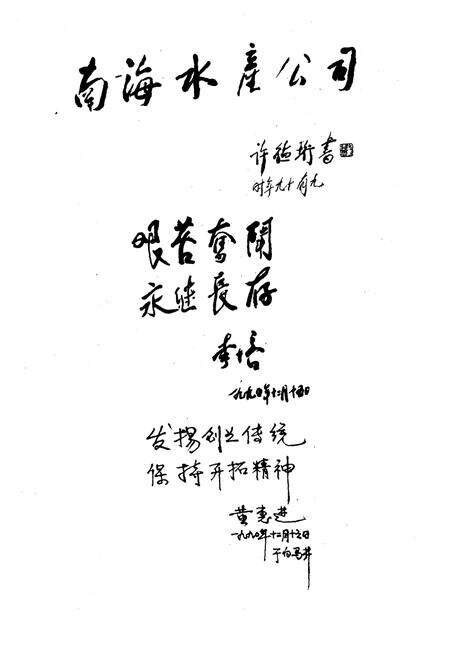 南海水産公司
许德珩書
时年九十有九
艰苦奮鬪
永继長存
李培
一九九〇年十二月十五日
发揚创业传统
保持开拓精神
黄惠进
一九九〇年十二月十六日
于白马井